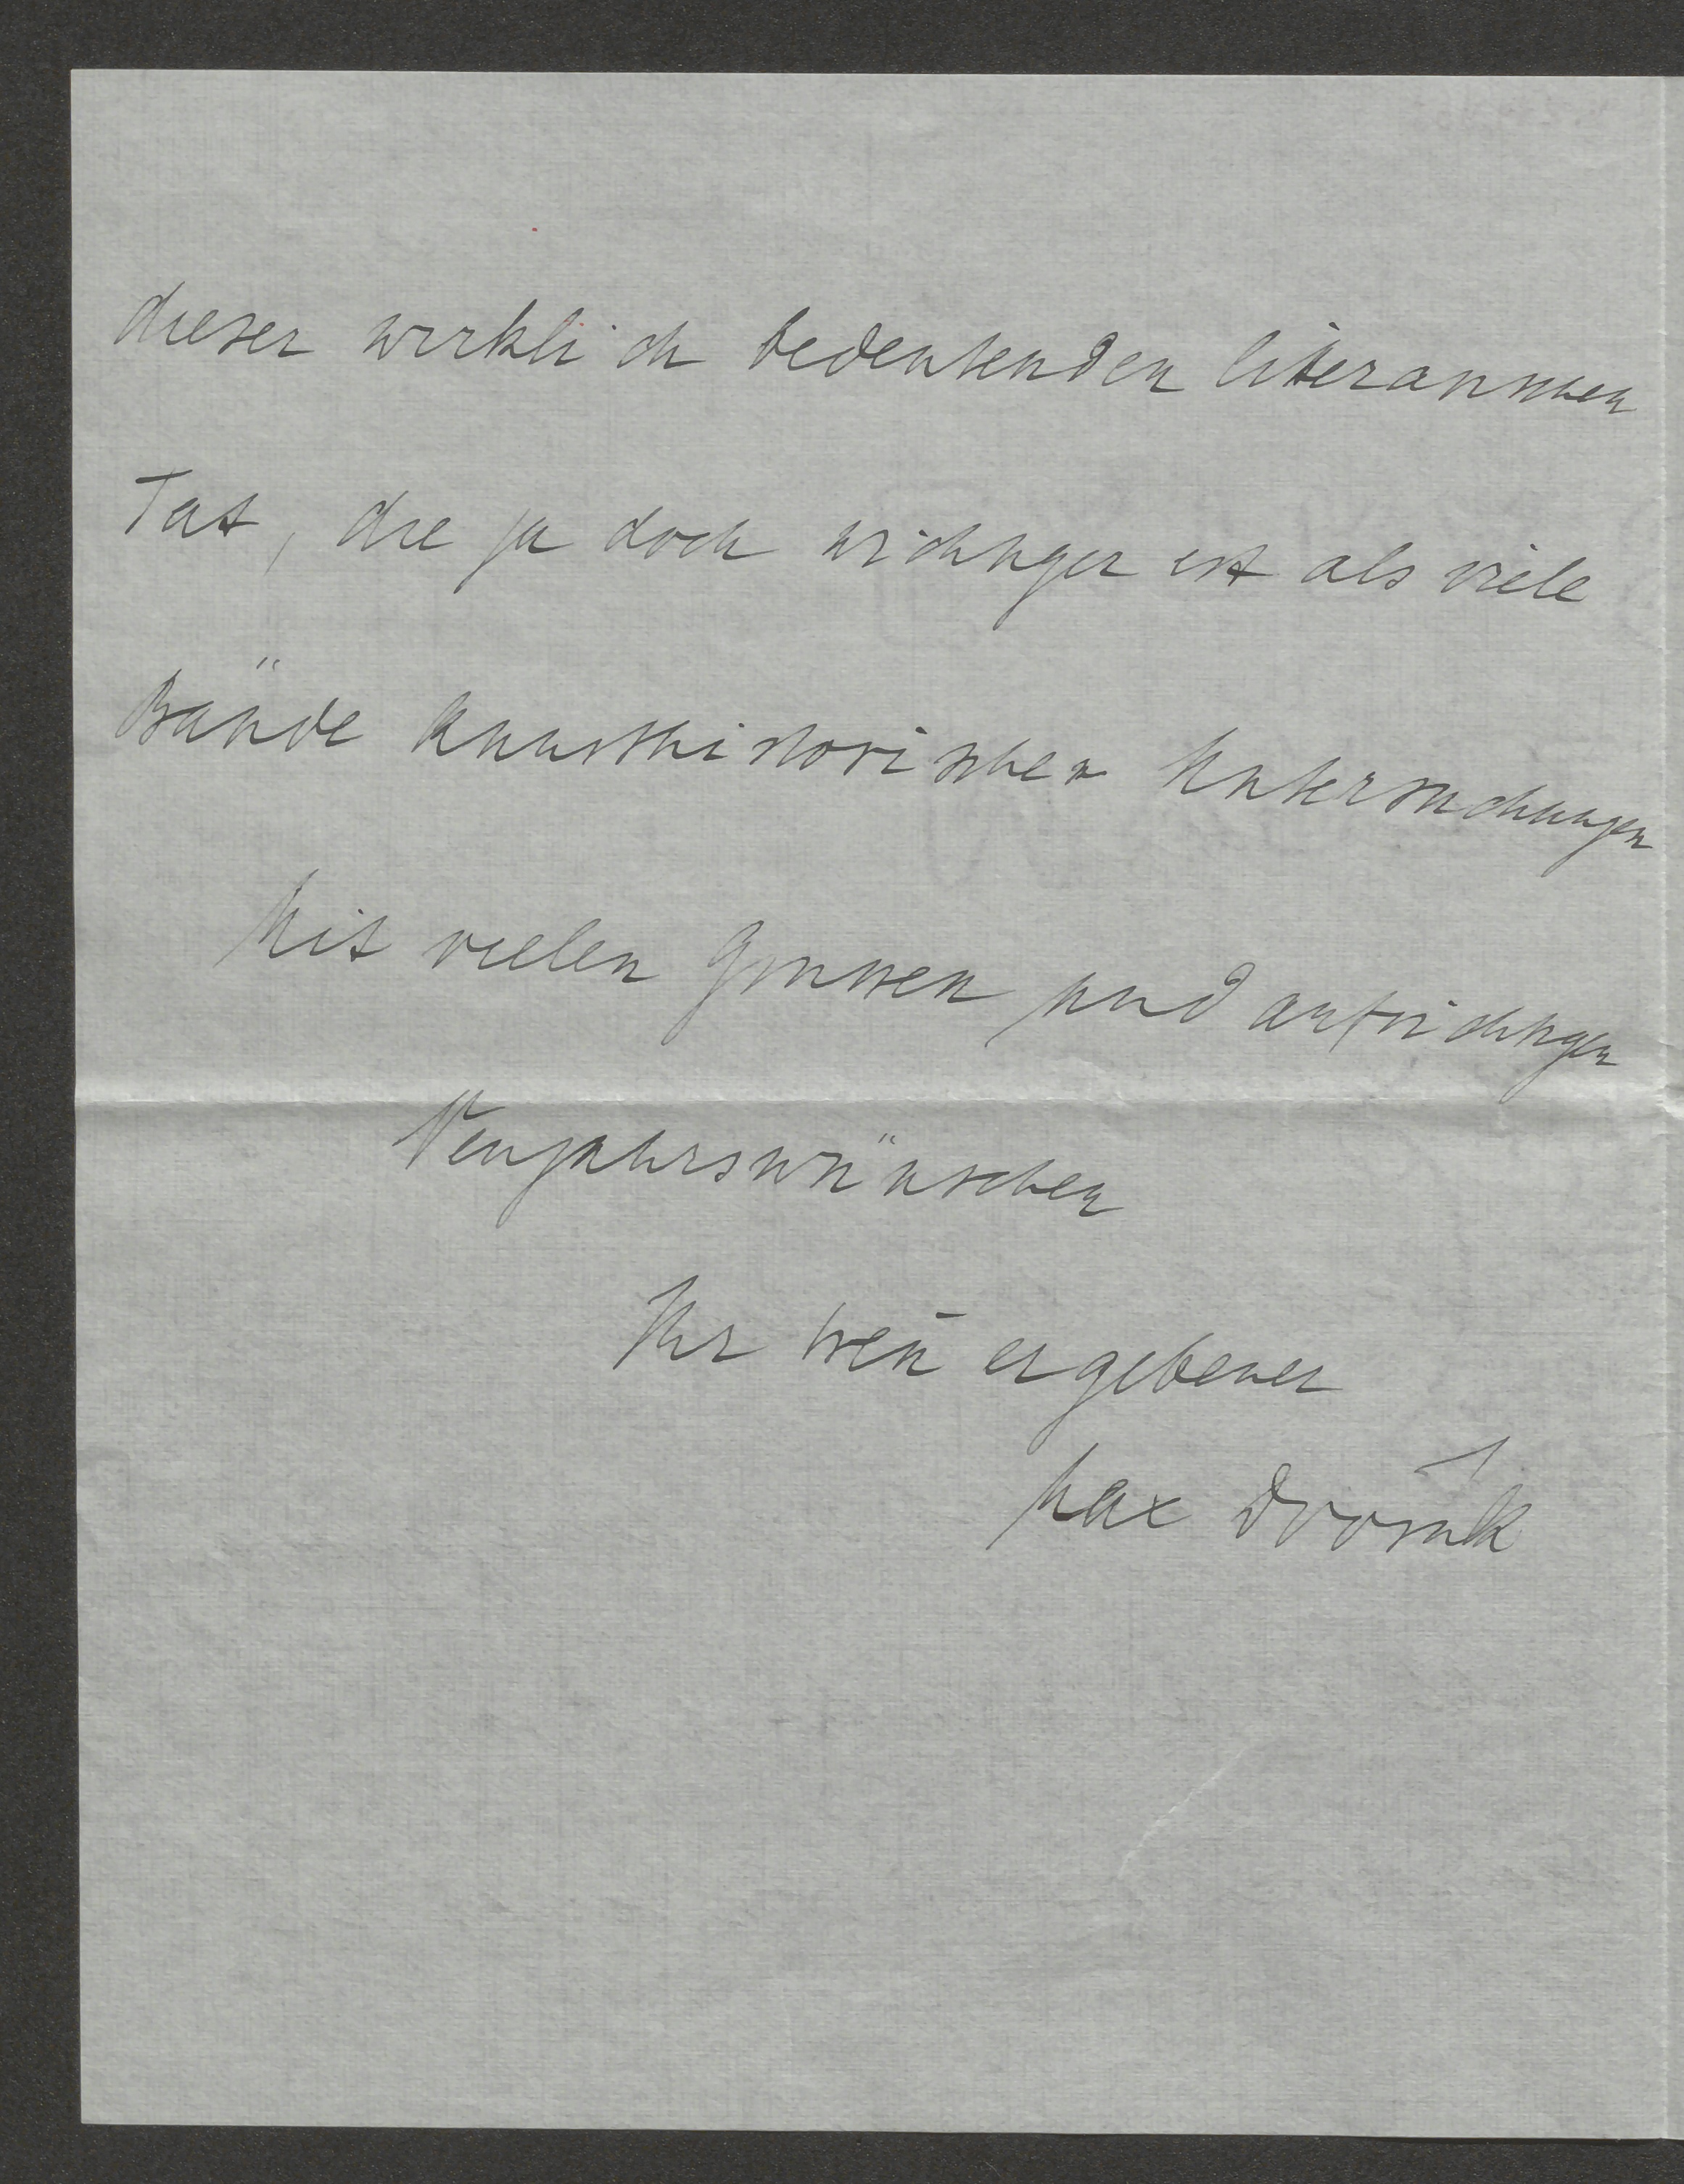 dieser wirklich bedeutenden literarischen
Tat, die ja doch wichtiger ist als viele
Bände kunsthistorischer Untersuchungen
Mit vielen Grussen und aufrichtigen
Neujahrswünschen
Ihr treu ergebener
Max Dvořák